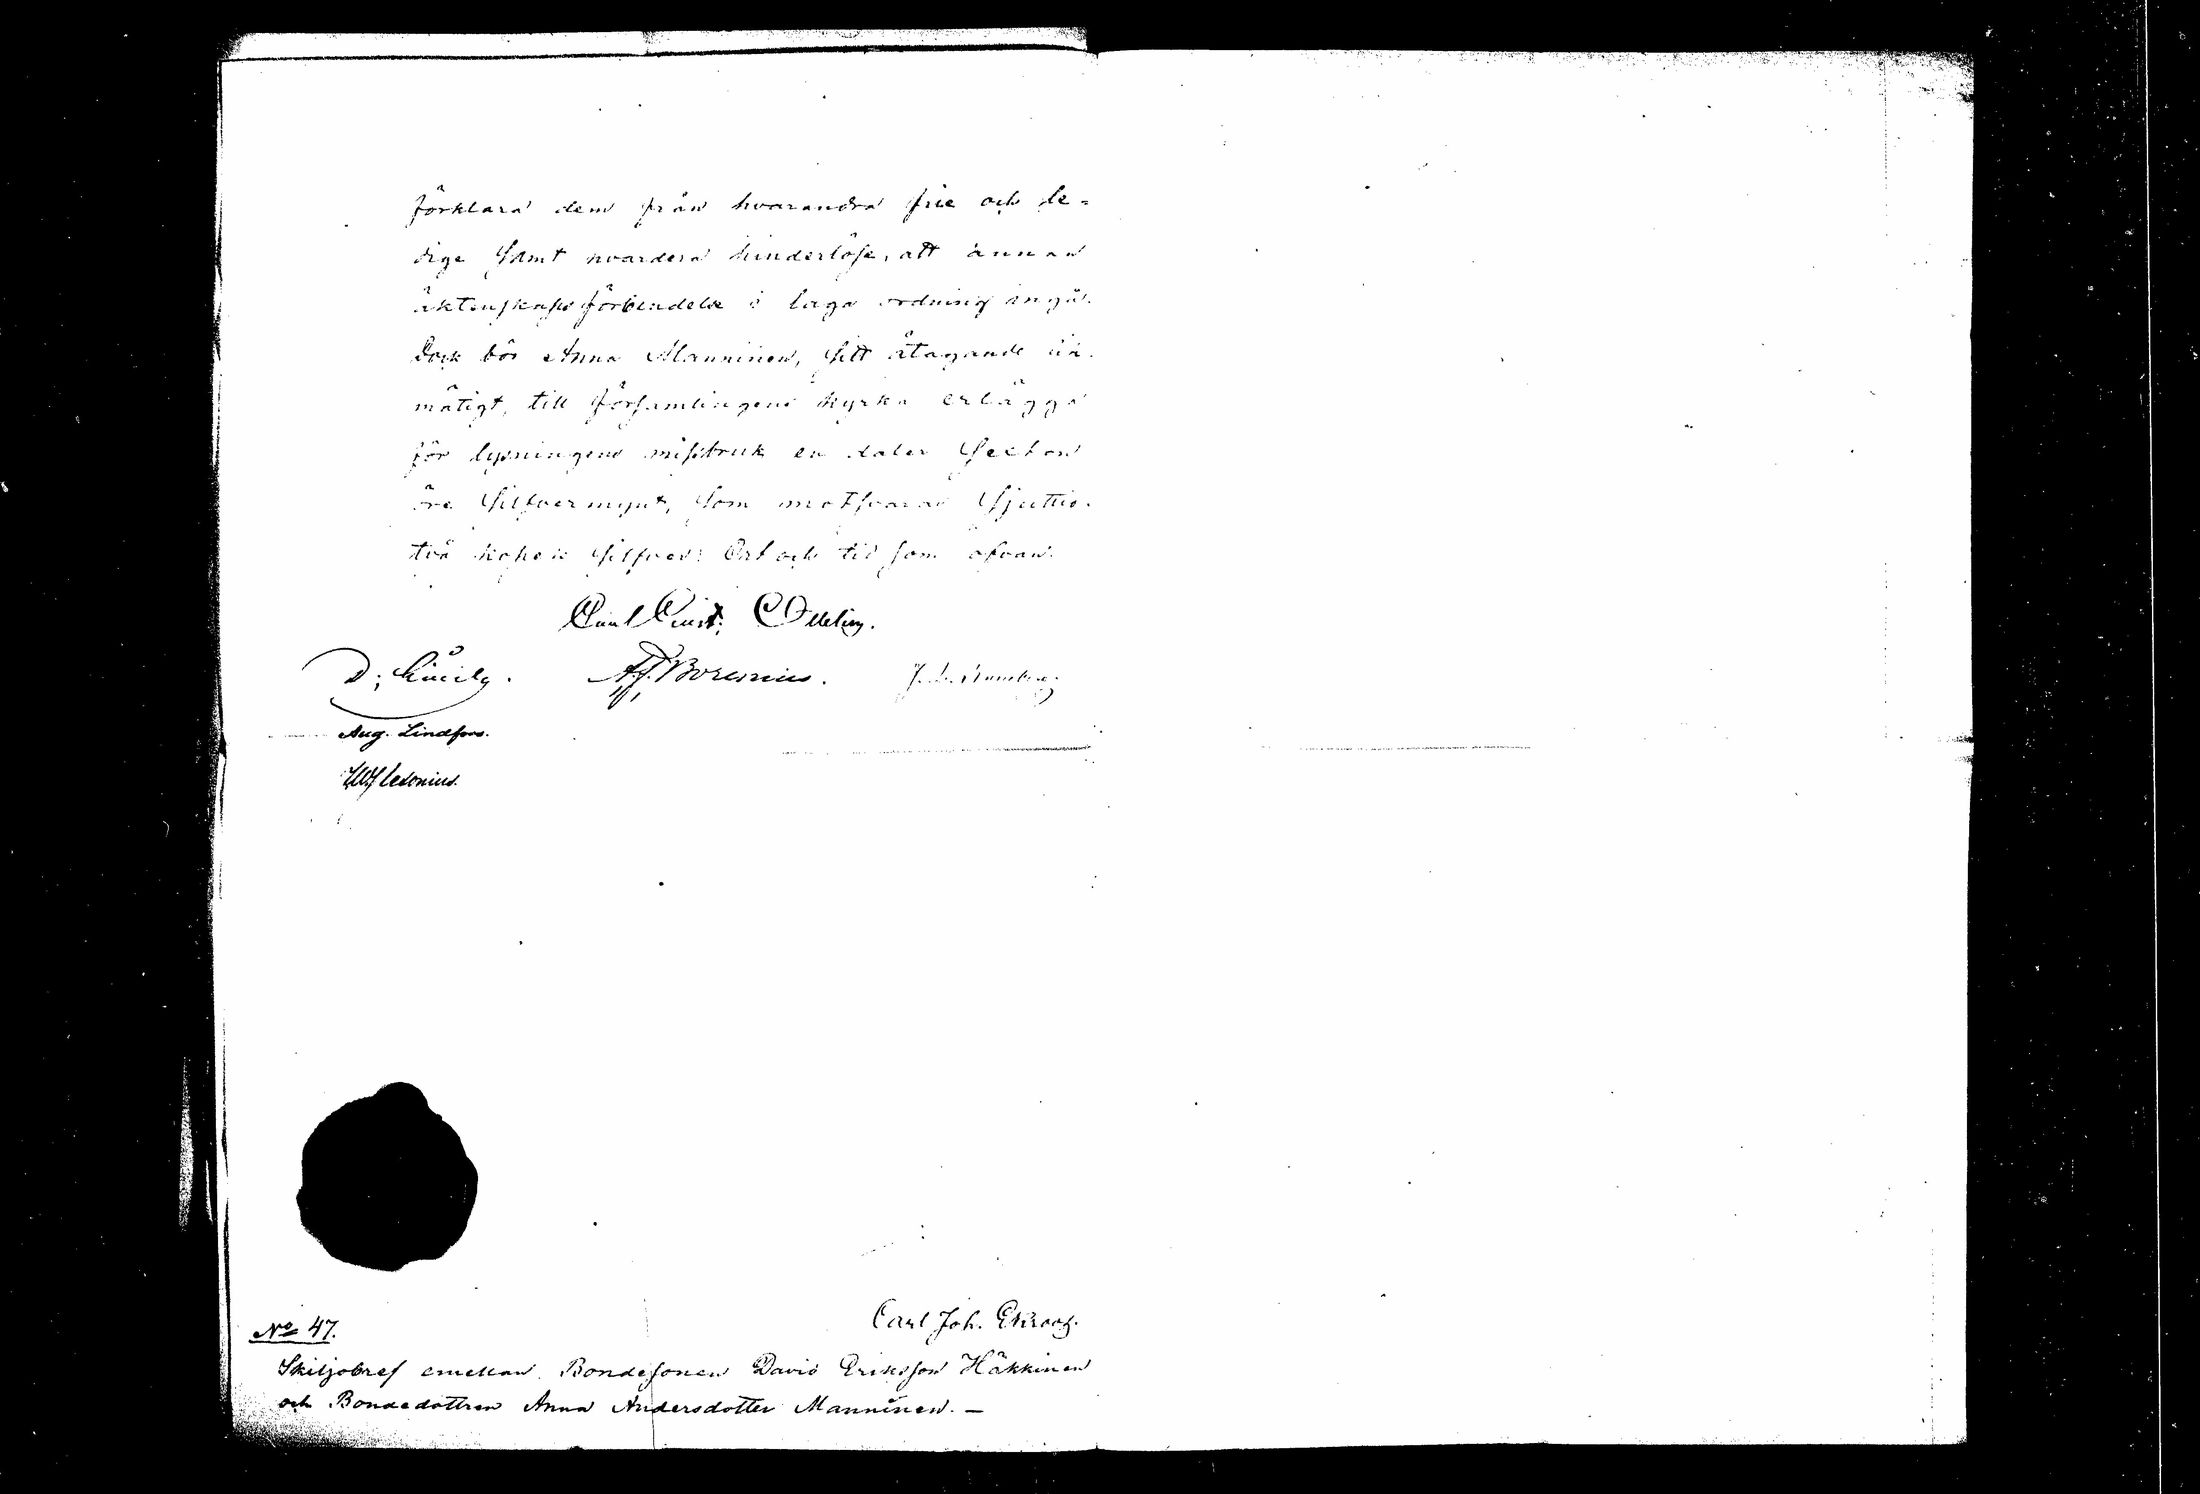 förklara dem från hvarandra frie och le-
dige samt hvardera hinderlöse, att annan
äktenskapsförbindelse i laga ordning ingå.
Dock bör Anna Manninen, sitt åtagande lik-
mätigt, till församlingens kyrka erlägga
för lysningens missbruk en daler sexton
öre silfvermynt, som motsvarar sjuttio-
två kopek silfver: Ort och tid som ofvan.
Carl
A. J. Borenius.
Aug. Lindfors.
No 47.
Carl Joh. Ekroos.
Skiljobref emellan Bondesonen David Eriksson Häkkinen
och Bondedottren Anna Andersdotter Manninen. —